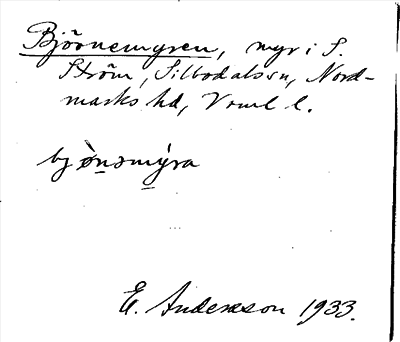 Björnemyren, myr i S.
Ström, Silbodals sn, Nord-
marks hd, Vrml l.
bjö̀nəmýra
E. Andersson 1933.